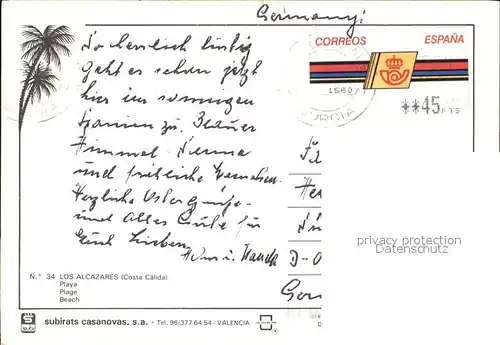 Germany:
CORREOS ESPAÑA
1560/
**45
PTS
URCIA
So herrlich lustig
geht es schon jetzt
hier im sonnigen
Spanien zu. Blauer
Himmel
und fröhliche Menschen.
Herzliche Ostergrüße
und Alles Gute für
Euch Lieben
D-0
Ger
privacy protection
Datenschutz
N.º 34 LOS ALCAZARES (Costa Cálida)
Playa
Plage
Beach
subirats casanovas, s.a. - Tel. 96/377 64 54 - VALENCIA